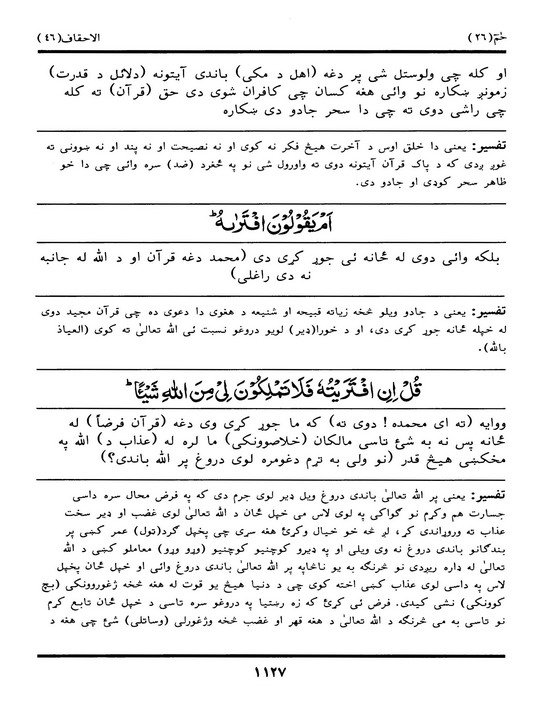 حٰمٓ(٢٦)
الاحقاف(٤٦)
او کله چی ولوستل شی پر دغه (اهل د مکی) باندی آیتونه (دلائل د قدرت)
زمونږ ښکاره نو وائی هغه کسان چی کافران شوی دی حق (قرآن) ته کله
چی راشی دوی ته چی دا سحر جادو دی ښکاره
تفسیر: یعنی دا خلق اوس د آخرت هیڅ فکر نه کوی او نه نصیحت او نه پند او نه ښوونی ته
غوږ ږدی که د پاک قرآن آیتونه دوی ته واورول شی نو په څغرد (ضد) سره وائی چی دا خو
ظاهر سحر کوډی او جادو دی.
اَمۡ یَقُوۡلُوۡنَ افۡتَرٰىهُ ؕ
بلکه وائی دوی له ځانه ئی جوړ کړی دی (محمد دغه قرآن او د الله له جانبه
نه دی راغلی)
تفسیر: یعنی د جادو ویلو څخه زیاته قبیحه او شنیعه د هغوی دا دعوی ده چی قرآن مجید دوی
له خپله ځانه جوړ کړی دی، او د خورا(ډیر) لویو دروغو نسبت ئی الله تعالیٰ ته کوی (العیاذ
بالله).
قُلۡ اِنِ افۡتَرَیۡتُهٗ فَلَا تَمۡلِکُوۡنَ لِیۡ مِنَ اللهِ شَیۡئًا ؕ
ووایه (ته ای محمده ! دوی ته) که ما جوړ کړی وی دغه (قرآن فرضاً) له
ځانه پس نه به شئ تاسی مالکان (خلاصوونکی) ما لره له (عذاب د) الله په
مخکښی هیڅ قدر (نو ولی به تړم دغومره لوی دروغ پر الله باندی؟)
تفسیر: یعنی پر الله تعالیٰ باندی دروغ ویل ډیر لوی جرم دی که په فرض محال سره داسی
جسارت هم وکړم نو ګواکی په لوی لاس می خپل ځان د الله تعالیٰ لوی غضب او ډیر سخت
عذاب ته وروړاندی کړ، لږ غه خو خیال وکړئ هغه سړی چی پخپل ګرد(ټول) عمر کښی پر
بندګانو باندی دروغ نه وی ویلی او په ډیرو کوچنیو کوچنیو (وړو وړو) معاملو کښی د الله
تعالیٰ له داره ریږدی نو څرنګه به یو ناڅاپه پر الله تعالیٰ باندی دروغ وائی او خپل ځان پخپل
لاس په داسی لوی عذاب کښی اخته کوی چی د دنیا هیڅ یو قوت له هغه څخه ژغوروونکی (بچ
کوونکی) نشی کیدی. فرض ئی کړئ که زه رښتیا په دروغو سره تاسی د خپل ځان تابع کړم
نو تاسی به می څرنګه د الله تعالیٰ د هغه قهر او غضب څخه وژغورلی (وساتلی) شئ چی هغه د
١١٢٧